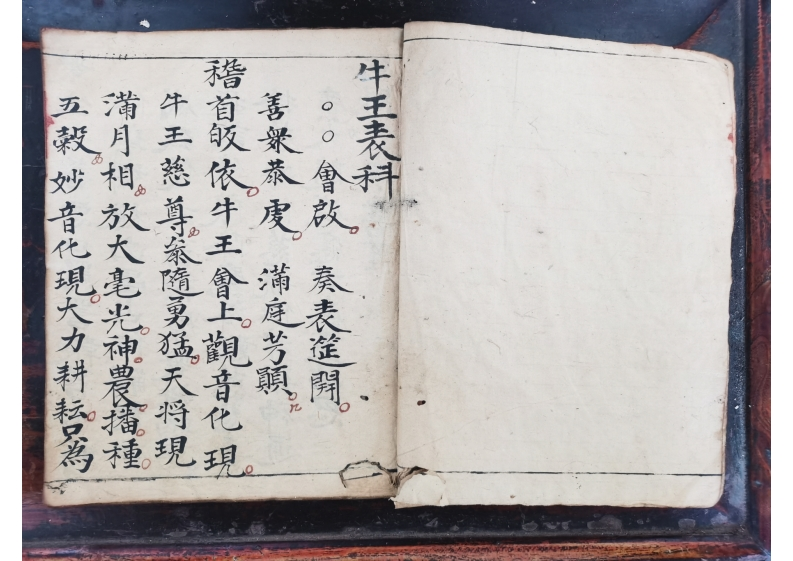 牛王表科
○○會啟 奏表筵開
善衆恭虔 滿庭芳顯
稽首皈依牛王會上觀音化現
牛王慈尊叅隨勇猛天将現
滿月相放大毫光神農播種
五穀妙音化現大力耕耘只為